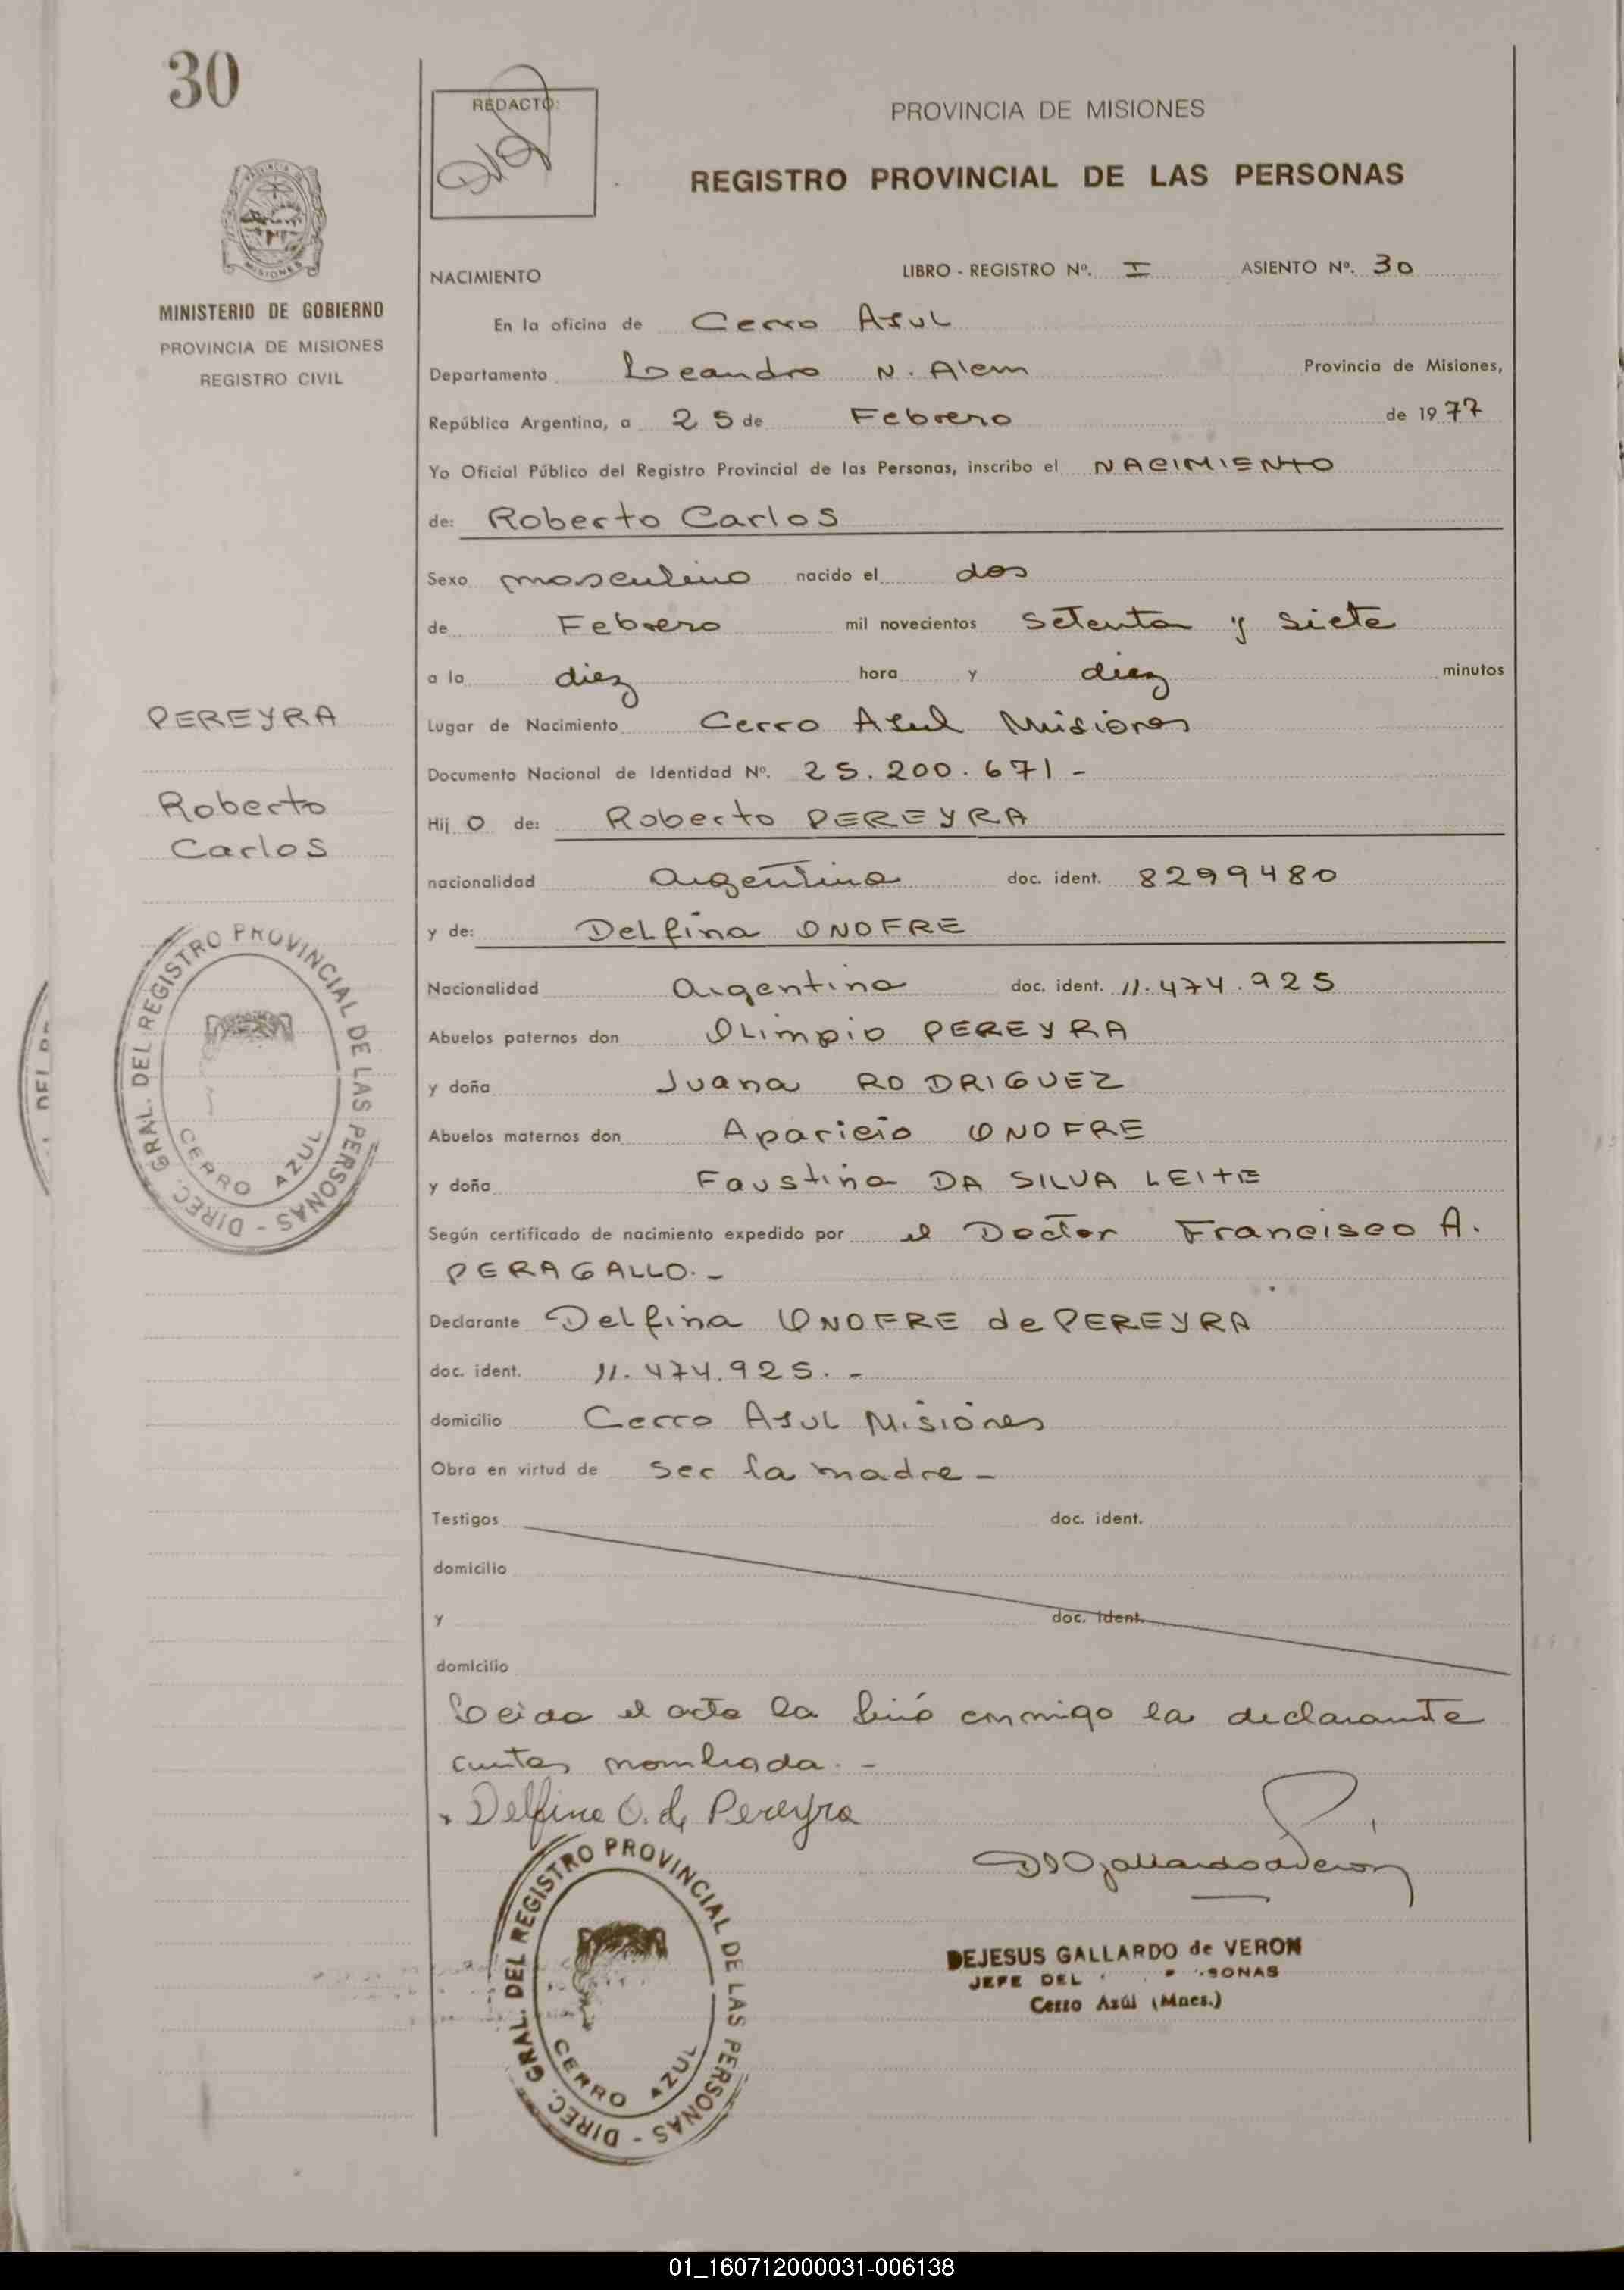 30
REDACTO:
PROVINCIA DE MISIONES
REGISTRO PROVINCIAL DE LAS PERSONAS
MISIONES
MINISTERIO DE GOBIERNO
PROVINCIA DE MISIONES
REGISTRO CIVIL
NACIMIENTO LIBRO - REGISTRO Nº. I ASIENTO Nº. 30
En la oficina de Cerro Asul
Departamento Leandro N. Alem Provincia de Misiones,
República Argentina, a 25 de Febrero de 1977
Yo Oficial Público del Registro Provincial de las Personas, inscribo el NACIMIENTO
de: Roberto Carlos
Sexo masculino nacido el dos
de Febrero mil novecientos setenta y siete
a la diez hora y diez minutos
PEREYRA
Lugar de Nacimiento Cerro Asul Misiones
Documento Nacional de Identidad Nº. 25.200.671-
Roberto
Carlos
Hij o de: Roberto PEREYRA
nacionalidad argentina doc. ident. 8299480
y de: Delfina ONOFRE
Nacionalidad argentina doc. ident. 11.474.925
Abuelos paternos don OLimpio PEREYRA
y doña Juana RODRIGUEZ
Abuelos maternos don Aparicio ONOFRE
y doña Faustina DA SILVA LEITE
DIREC. GRAL. DEL REGISTRO PROVINCIAL DE LAS PERSONAS -
CERRO AZUL
Según certificado de nacimiento expedido por el Doctor Francisco A.
PERAGALLO.-
Declarante Delfina ONOFRE de PEREYRA
doc. ident. 11.474.925.-
domicilio Cerro Asul Misiones
Obra en virtud de ser la madre-
Testigos doc. ident.
domicilio
y doc. ident.
domicilio
Leida el acta la firmó conmigo la declarante
antes nombrada.-
Delfina O. de Pereyra
DIREC. GRAL. DEL REGISTRO PROVINCIAL DE LAS PERSONAS -
CERRO AZUL
DEJESUS GALLARDO de VERON
JEFE DEL SONAS
Cerro Azúl (Mnes.)
01_160712000031-006138